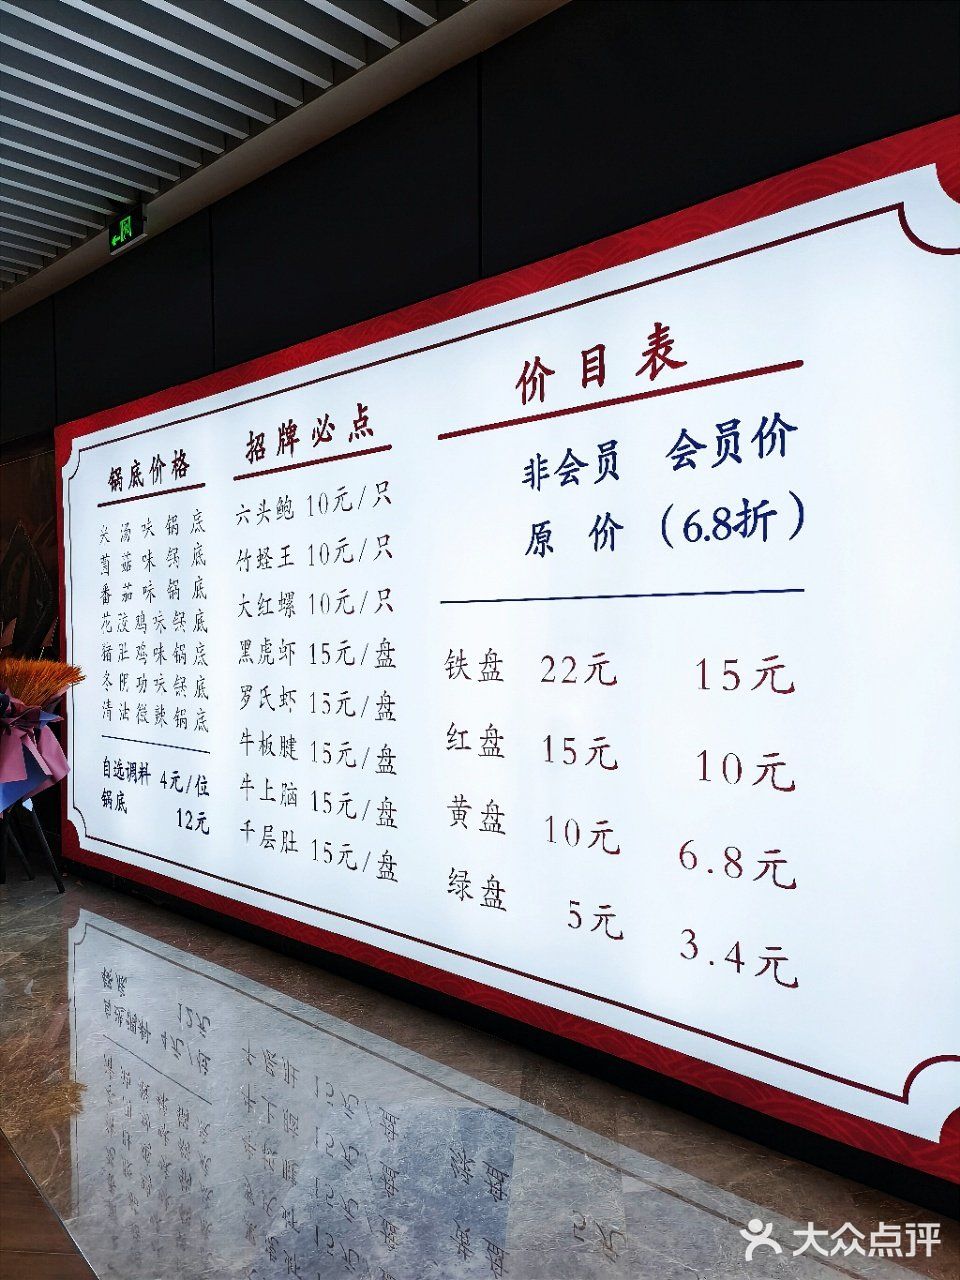 锅底价格
菌菇味锅底
番茄味锅底
花胶鸡味锅底
猪肚鸡味锅底
冬阴功味锅底
清油微辣锅底
自选调料 4元/位
锅底 12元
招牌必点
六头鲍 10元/只
竹蛏王 10元/只
大红螺 10元/只
黑虎虾 15元/盘
罗氏虾 15元/盘
牛板腱 15元/盘
牛上脑 15元/盘
千层肚 15元/盘
价目表
非会员 会员价
原价 (6.8折)
铁盘 22元 15元
红盘 15元 10元
黄盘 10元 6.8元
绿盘 5元 3.4元
大众点评